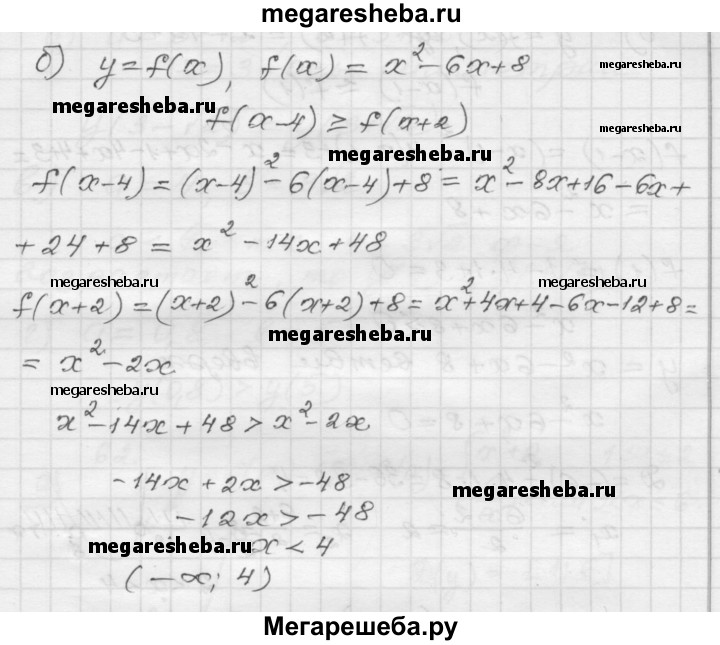 megaresheba.ru
б) y=f(x), f(x) = x²-6x+8
megaresheba.ru
megaresheba.ru
f(x-4) ≥ f(x+2)
megaresheba.ru
megaresheba.ru
f(x-4) = (x-4)²-6(x-4)+8 = x²-8x+16-6x+
+24+8 = x²-14x+48
megaresheba.ru
megaresheba.ru
f(x+2) = (x+2)²-6(x+2)+8 = x²+4x+4-6x-12+8=
megaresheba.ru
= x²-2x
megaresheba.ru
x²-14x+48 > x²-2x
-14x+2x > -48
megaresheba.ru
-12x > -48
megaresheba.ru
x < 4
(-∞; 4)
Мегарешеба.ру